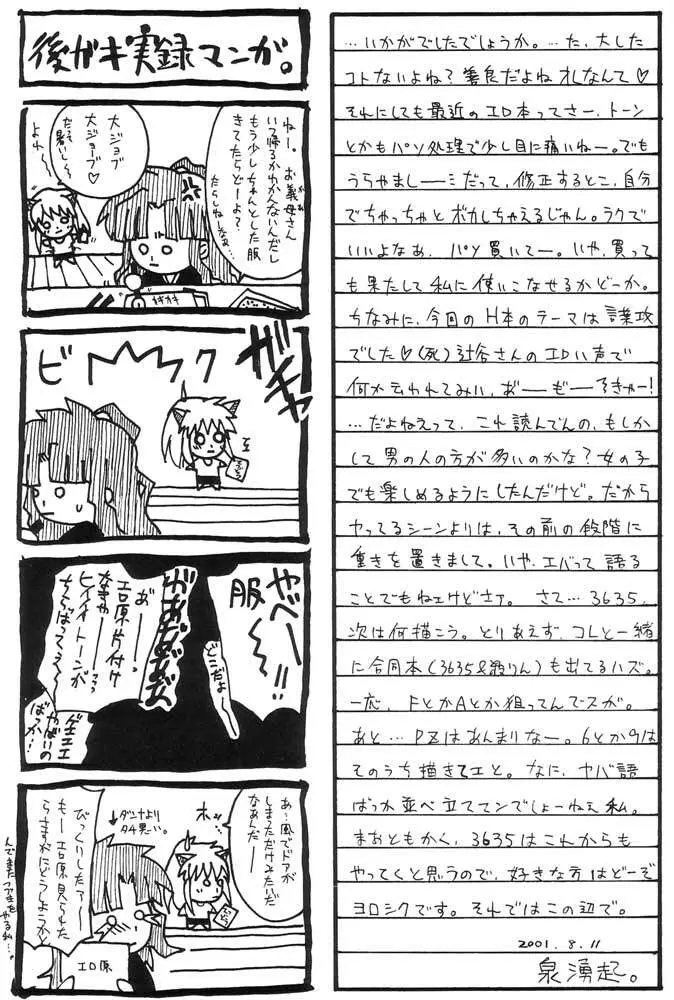 後ガキ実録マンガ。
ねー。お義母さん
いつ帰るかわかんないんだし
もう少しちゃんとした服
きてたらどーよ?
だらしねなぁ…
大ジョブ
大ジョブ♡
だって
暑いしぃ。
よわ〜
ガチャ
ビクッ
やべー!!
服
どこだよ
があああああ
あ゛ーっ
エロ原片付け
なきゃーっっ
ヒィィィトーンが
ちらばってぇ〜
ゲェエエ
やばいの
ばっか…
あ〜風でドアが
しまっただけみたいだ
なぁんだー
ホッ…
↓ダンナより
タチ悪ーい。
びっくりしたァー
もー エロ原見られた
らさすがにどうしようかと
エロ原
んでまたフツーにやる私…。
…いかがでしたでしょうか。…た、大した
コトないよね?善良だよねオレなんて♡
それにしても最近のエロ本ってさー、トーン
とかもパソ処理で少し目に痛いねー。でも
うらやましーーミだって、修正するとこ、自分
でちゃっちゃとボカしちゃえるじゃん。ラクで
いいよなぁ、パソ買いてー。いや、買って
も果たして私に使いこなせるかどーか。
ちなみに、今回のH本のテーマは言葉攻
でした♡(死)辻谷さんのエロい声で
何か云われてみい、おーーもーーろきゃー!
…だよねえって、これ読んでんの、もしか
して男の人の方が多いのかな?女の子
でも楽しめるようにしたんだけど。だから
ヤってるシーンよりは、その前の段階に
重きを置きまして。いや、エバって語る
ことでもねェけどさァ。さて…3635、
次は何描こう。とりあえず、コレと一緒
に合同本(3635&殺りん)も出てるハズ。
一応、FとかAとか狙ってんでスが。
あと…PZはあんまりなー。6とか9は
そのうち描きてェと。なに、ヤバ語
ばっか並べ立ててンでしょーねぇ私。
まあともかく、3635はこれからも
やってくと思うので、好きな方はどーぞ
ヨロシクです。それではこの辺で。
2001.8.11
泉湧起。